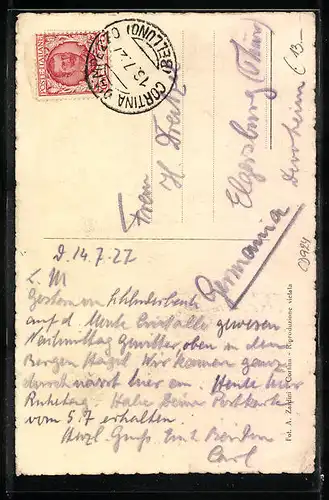 POSTE ITALIANE
CORTINA D'AMPEZZO (BELLUNO)
15.7.27
Frau
H. Drecht
Elgersburg (Thür)
Germania
D. 14.7.27
L. M
Gestern in
auf d. Monte Cristallo gewesen
Nachmittag Gewitter oben in den
Bergen Hagel Wir kamen ganz
durchnässt hier an. Heute hier
Ruhetag. Habe Deine Postkarte
vom 5.7 erhalten.
Herzl. Gruß
Carl
Fot. A. Zardini - Cortina - Riproduzione vietata